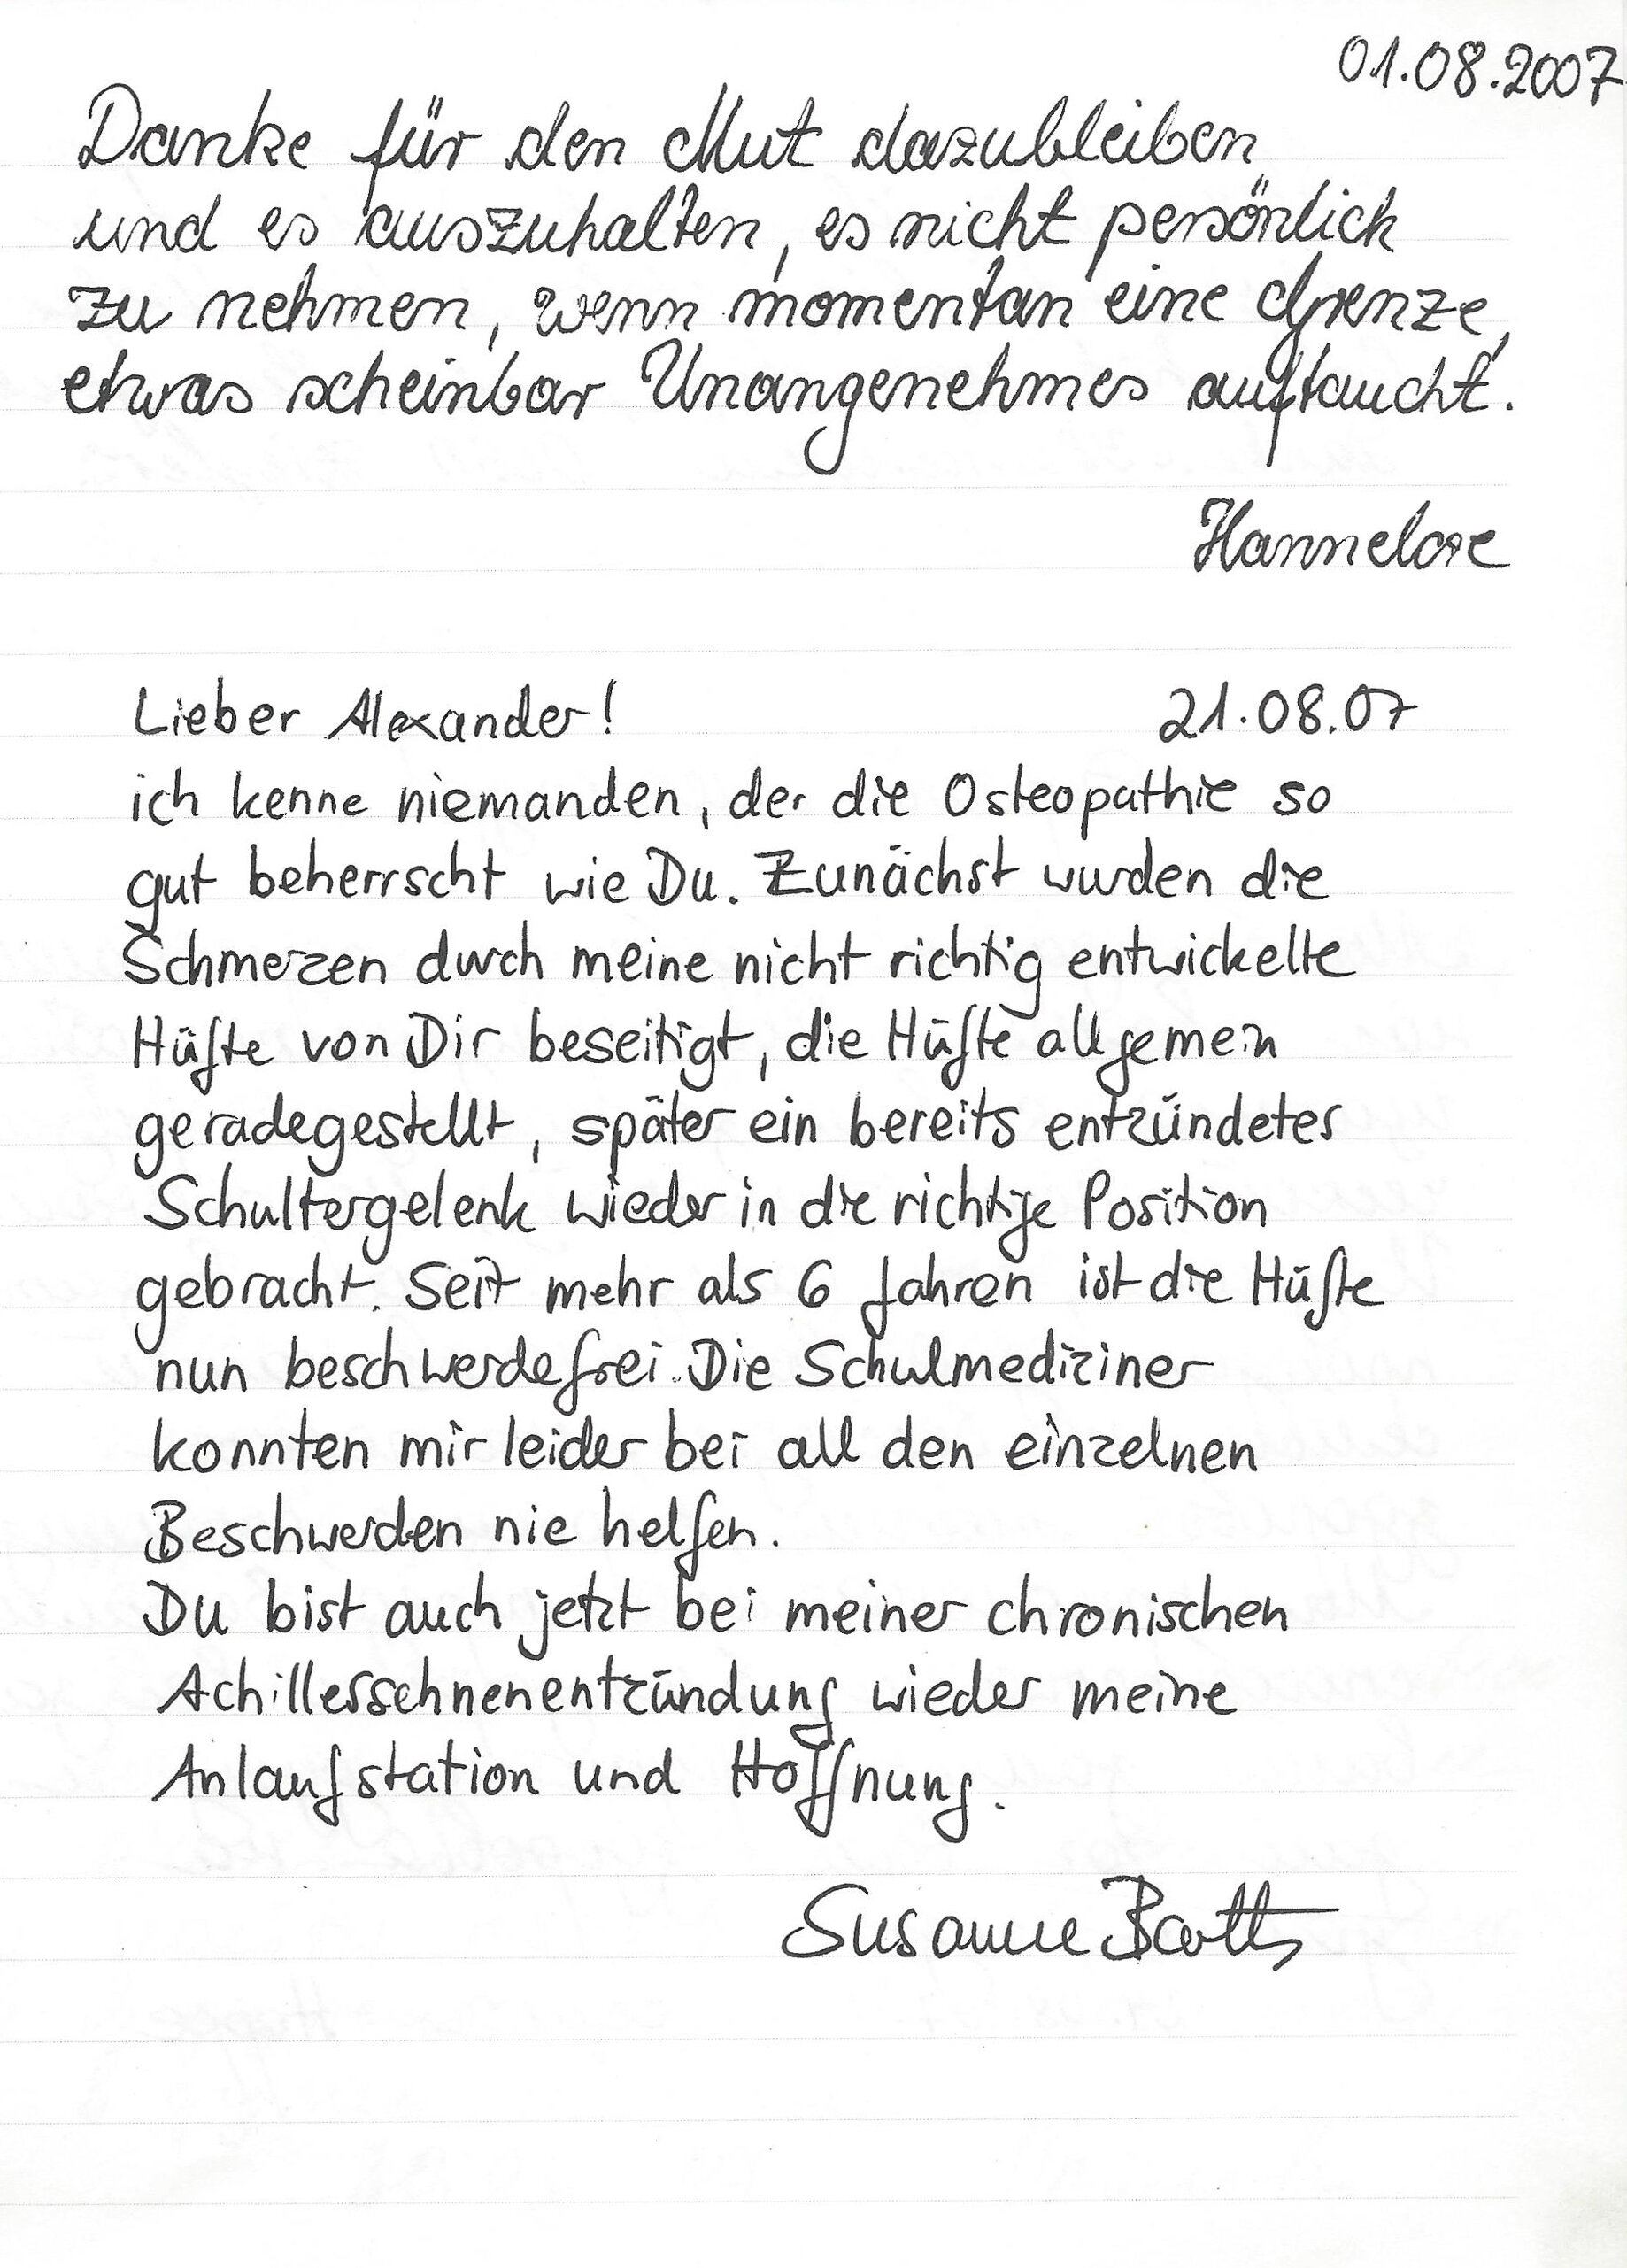 01.08.2007
Danke für den Mut dazubleiben
und es auszuhalten, es nicht persönlich
zu nehmen, wenn momentan eine Grenze,
etwas scheinbar Unangenehmes auftaucht.
Hannelore
Lieber Alexander! 21.08.07
ich kenne niemanden, der die Osteopathie so
gut beherrscht wie Du. Zunächst wurden die
Schmerzen durch meine nicht richtig entwickelte
Hüfte von Dir beseitigt, die Hüfte allgemein
geradegestellt, später ein bereits entzündetes
Schultergelenk wieder in die richtige Position
gebracht. Seit mehr als 6 Jahren ist die Hüfte
nun beschwerdefrei. Die Schulmediziner
konnten mir leider bei all den einzelnen
Beschwerden nie helfen.
Du bist auch jetzt bei meiner chronischen
Achillessehnenentzündung wieder meine
Anlaufstation und Hoffnung.
Susanne